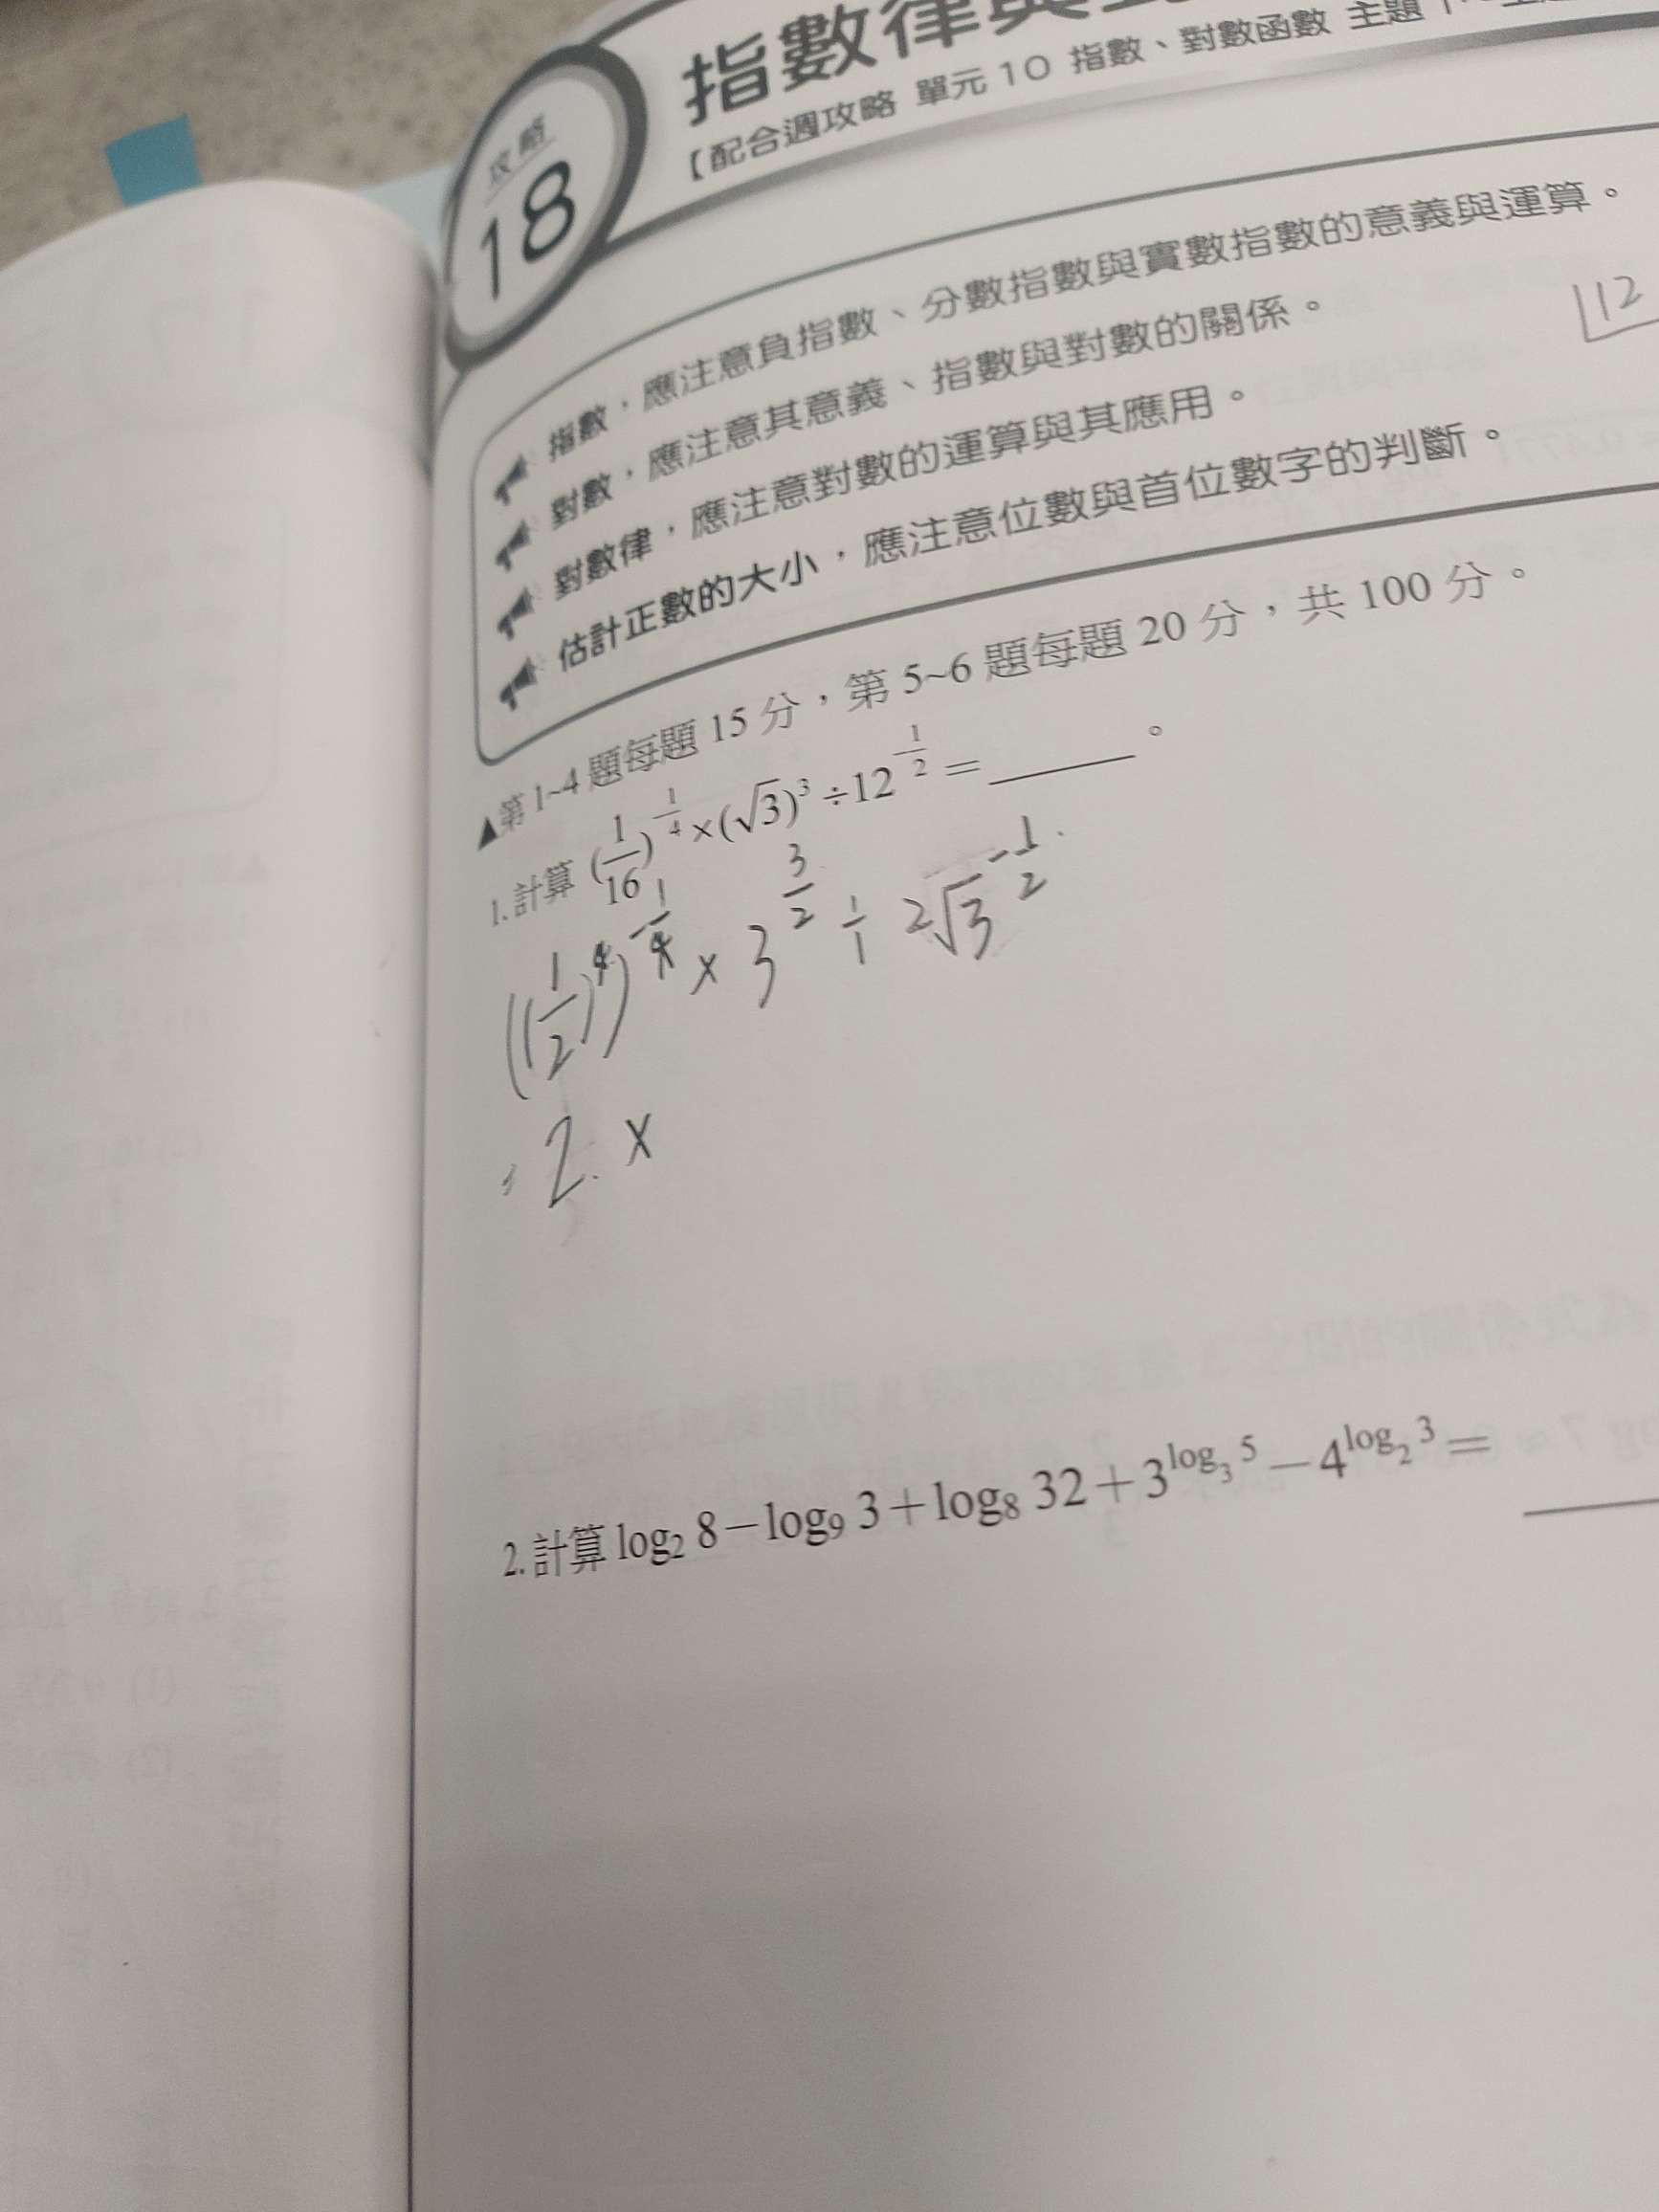 攻略
18
指數律與
【配合週攻略 單元 10 指數、對數函數 主題
指數，應注意負指數、分數指數與實數指數的意義與運算。
對數，應注意其意義、指數與對數的關係。
對數律，應注意對數的運算與其應用。
估計正數的大小，應注意位數與首位數字的判斷。
12
▲第 1~4 題每題 15 分，第 5~6 題每題 20 分，共 100 分。
1. 計算 (1/16)^(-1/4) × (√3)³ ÷ 12^(-1/2) = ______。
((1/2)^4)^(-1/4) × 3^(3/2) ÷ 2√3^(-1/2)
= 2 ×
2. 計算 log₂ 8 − log₉ 3 + log₈ 32 + 3^(log₃ 5) − 4^(log₂ 3) = ______